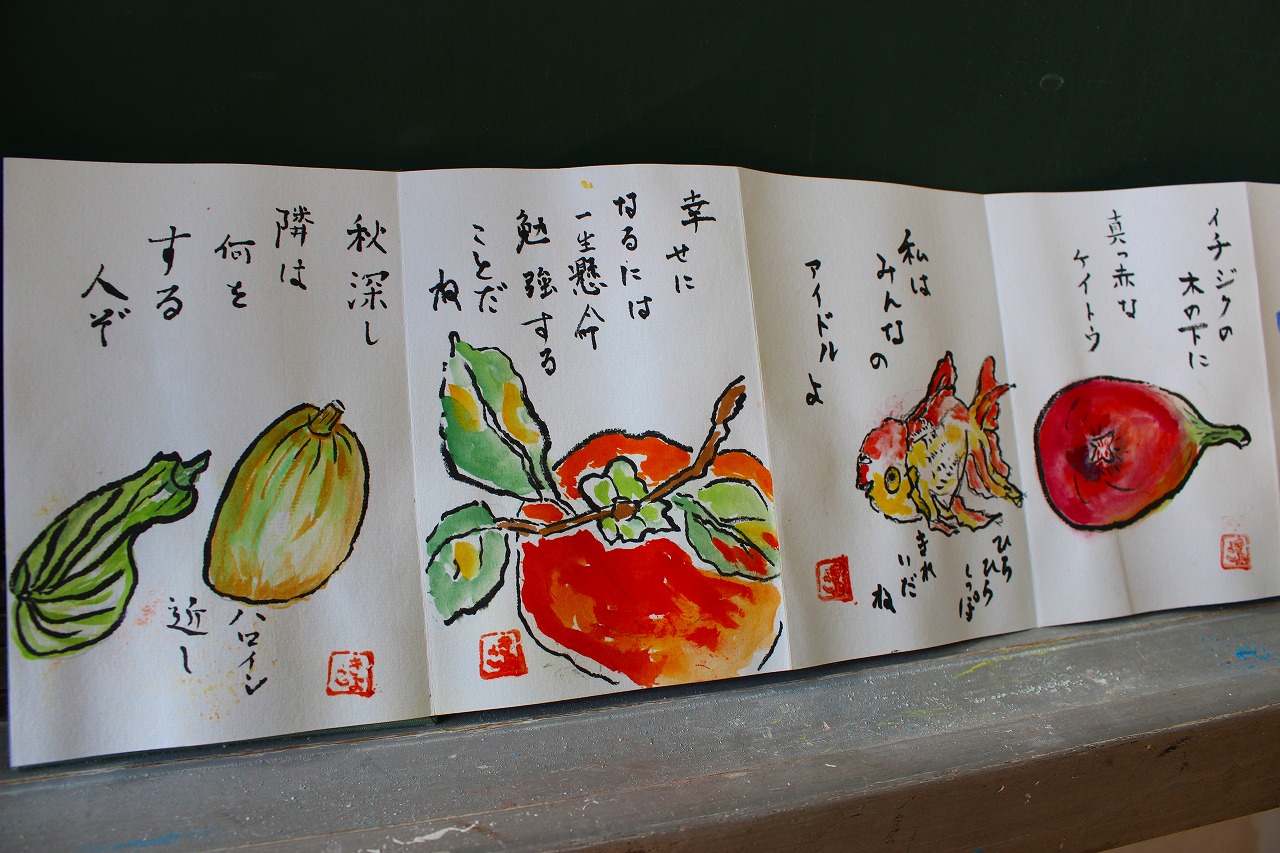 イチジクの
木の下に
真っ赤な
ケイトウ
私は
みんなの
アイドルよ
ひらひら
しっぽ
きれいだ
ね
幸せに
なるには
一生懸命
勉強する
ことだ
ね
秋深し
隣は
何を
する
人ぞ
ハロイン
近し